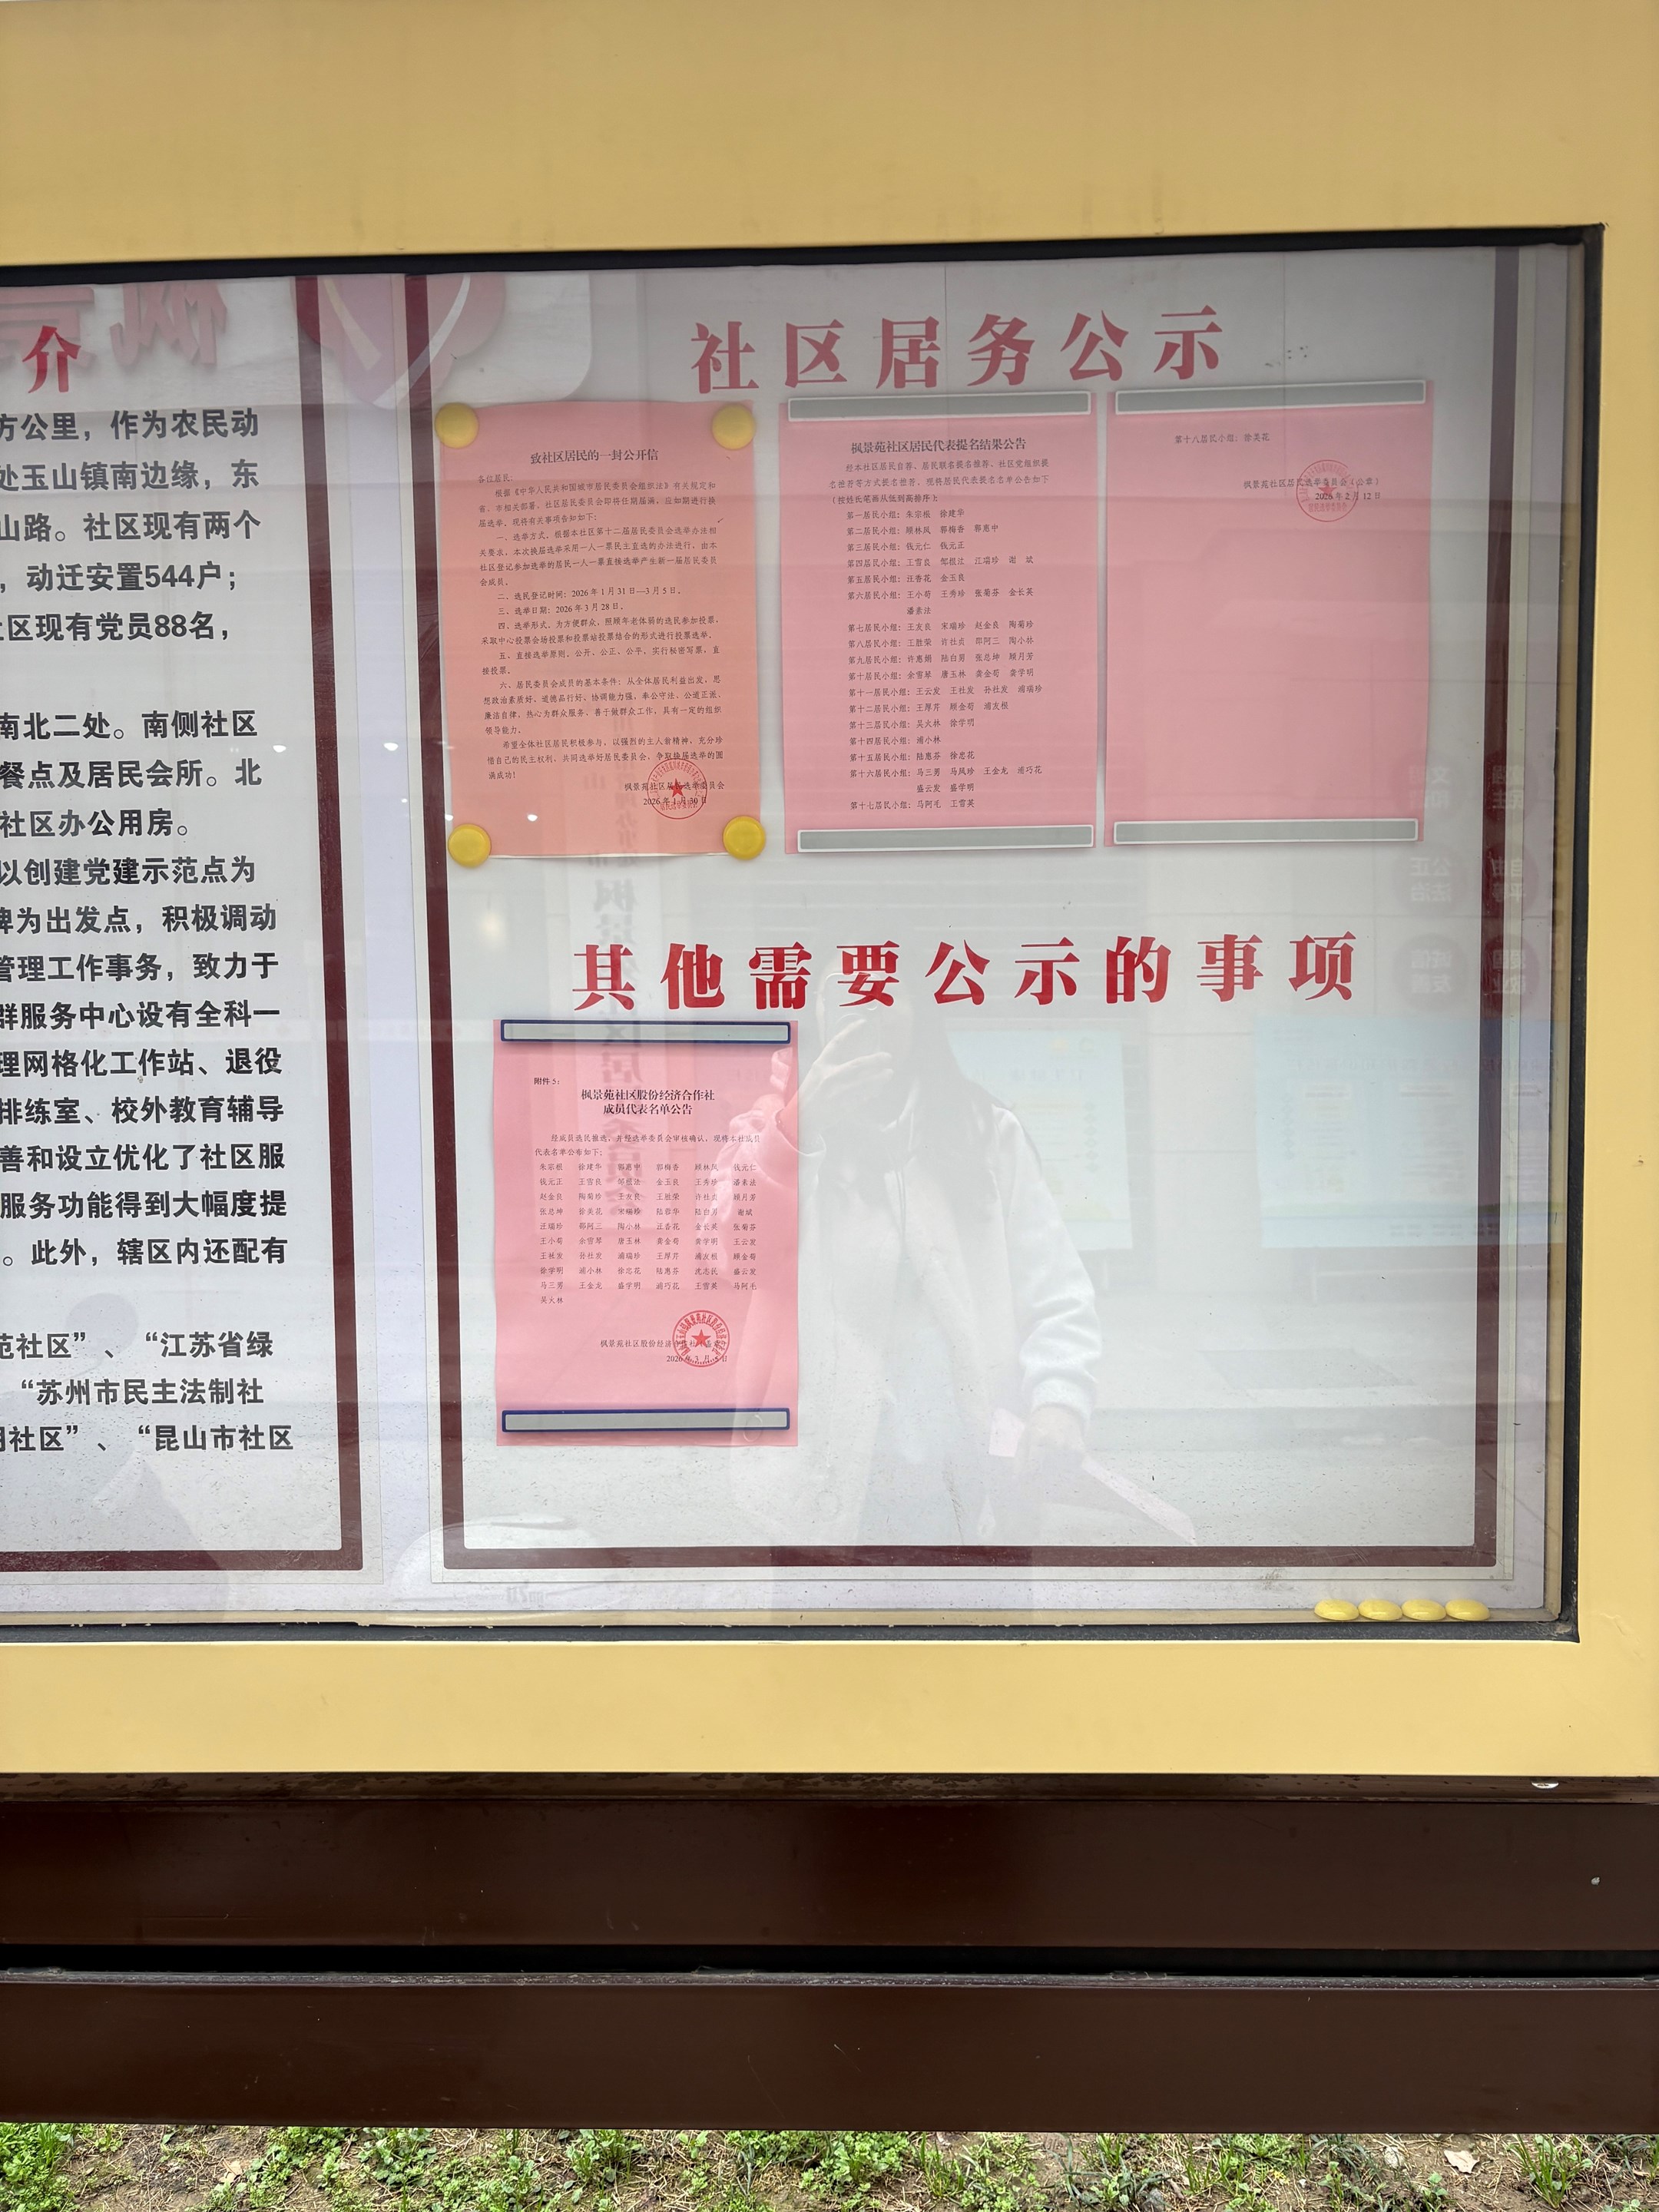 介
方公里，作为农民动
处玉山镇南边缘，东
山路。社区现有两个
，动迁安置544户；
区现有党员88名，
南北二处。南侧社区
餐点及居民会所。北
社区办公用房。
以创建党建示范点为
牌为出发点，积极调动
管理工作事务，致力于
群服务中心设有全科一
理网格化工作站、退役
排练室、校外教育辅导
善和设立优化了社区服
服务功能得到大幅度提
。此外，辖区内还配有
范社区”、“江苏省绿
“苏州市民主法制社
明社区”、“昆山市社区
社区居务公示
致社区居民的一封公开信
各位居民：
根据《中华人民共和国城市居民委员会组织法》有关规定和
省、市相关部署，社区居民委员会即将任期届满，应如期进行换
届选举。现将有关事项告知如下：
一、选举方式。根据本社区第十二届居民委员会选举办法相
关要求，本次换届选举采用一人一票民主直选的办法进行，由本
社区登记参加选举的居民一人一票直接选举产生新一届居民委员
会成员。
二、选民登记时间：2026年1月31日—3月5日。
三、选举日期：2026年3月28日。
四、选举形式。为方便群众，照顾年老体弱的选民参加投票，
采取中心投票会场投票和投票站投票结合的形式进行投票选举。
五、直接选举原则。公开、公正、公平，实行秘密写票，直
接投票。
六、居民委员会成员的基本条件：从全体居民利益出发，思
想政治素质好，道德品行好，协调能力强，奉公守法、公道正派、
廉洁自律，热心为群众服务、善于做群众工作，具有一定的组织
领导能力。
希望全体社区居民积极参与，以强烈的主人翁精神，充分珍
惜自己的民主权利，共同选举好居民委员会，争取换届选举的圆
满成功！
枫景苑社区居民选举委员会
2026年1月30日
枫景苑社区居民代表提名结果公告
经本社区居民自荐、居民联名提名推荐、社区党组织提
名推荐等方式提名推荐，现将居民代表提名名单公告如下
（按姓氏笔画从低到高排序）：
第一居民小组：朱宗根 徐建华
第二居民小组：顾林凤 郭梅香 郭惠中
第三居民小组：钱元仁 钱元正
第四居民小组：王雪良 邹根法 江瑞珍 谢斌
第五居民小组：汪香花 金玉良
第六居民小组：王小苟 王秀珍 张菊芬 金长英
潘素法
第七居民小组：王友良 宋瑞珍 赵金良 陶菊珍
第八居民小组：王胜荣 许社贞 邵阿三 陶小林
第九居民小组：许惠娟 陆白男 张总坤 顾月芳
第十居民小组：余雪琴 唐玉林 龚金苟 龚学明
第十一居民小组：王云发 王社发 孙社发 浦瑞珍
第十二居民小组：王厚芹 顾金苟 浦友根
第十三居民小组：吴火林 徐学明
第十四居民小组：浦小林
第十五居民小组：陆惠芬 徐忠花
第十六居民小组：马三男 马凤珍 王金龙 浦巧花
盛云发 盛学明
第十七居民小组：马阿毛 王雪英
第十八居民小组：徐美花
枫景苑社区居民选举委员会（公章）
2026年2月12日
其他需要公示的事项
附件5：
枫景苑社区股份经济合作社
成员代表名单公告
经成员选民推选，并经选举委员会审核确认，现将本社成员
代表名单公布如下：
朱宗根 徐建华 郭惠中 郭梅香 顾林凤 钱元仁
钱元正 王雪良 邹根法 金玉良 王秀珍 潘素法
赵金良 陶菊珍 王友良 王胜荣 许社贞 顾月芳
张总坤 徐美花 宋瑞珍 陆白男 谢斌
汪瑞珍 邵阿三 陶小林 汪香花 金长英 张菊芬
王小苟 余雪琴 唐玉林 龚金苟 龚学明 王云发
王社发 孙社发 浦瑞珍 王厚芹 浦友根 顾金苟
徐学明 浦小林 徐忠花 陆惠芬 沈志民 盛云发
马三男 王金龙 盛学明 浦巧花 王雪英 马阿毛
吴火林
枫景苑社区股份经济合作社
2026年3月